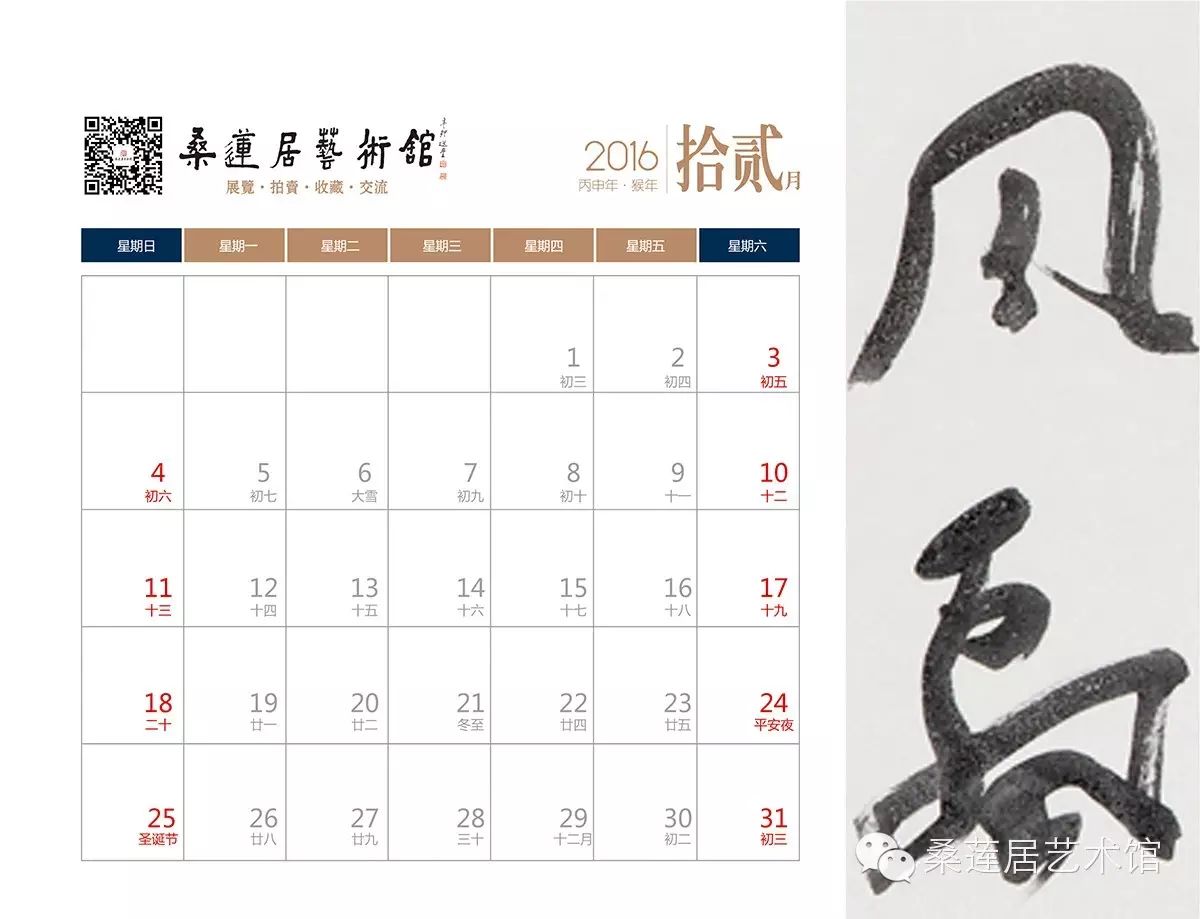 桑蓮居藝術館
展覽·拍賣·收藏·交流
2016
丙申年·猴年
拾贰月
星期日 星期一 星期二 星期三 星期四 星期五 星期六
1 2 3
初三 初四 初五
4 5 6 7 8 9 10
初六 初七 大雪 初九 初十 十一 十二
11 12 13 14 15 16 17
十三 十四 十五 十六 十七 十八 十九
18 19 20 21 22 23 24
二十 廿一 廿二 冬至 廿四 廿五 平安夜
25 26 27 28 29 30 31
圣诞节 廿八 廿九 三十 十二月 初二 初三
风
桑莲居艺术馆